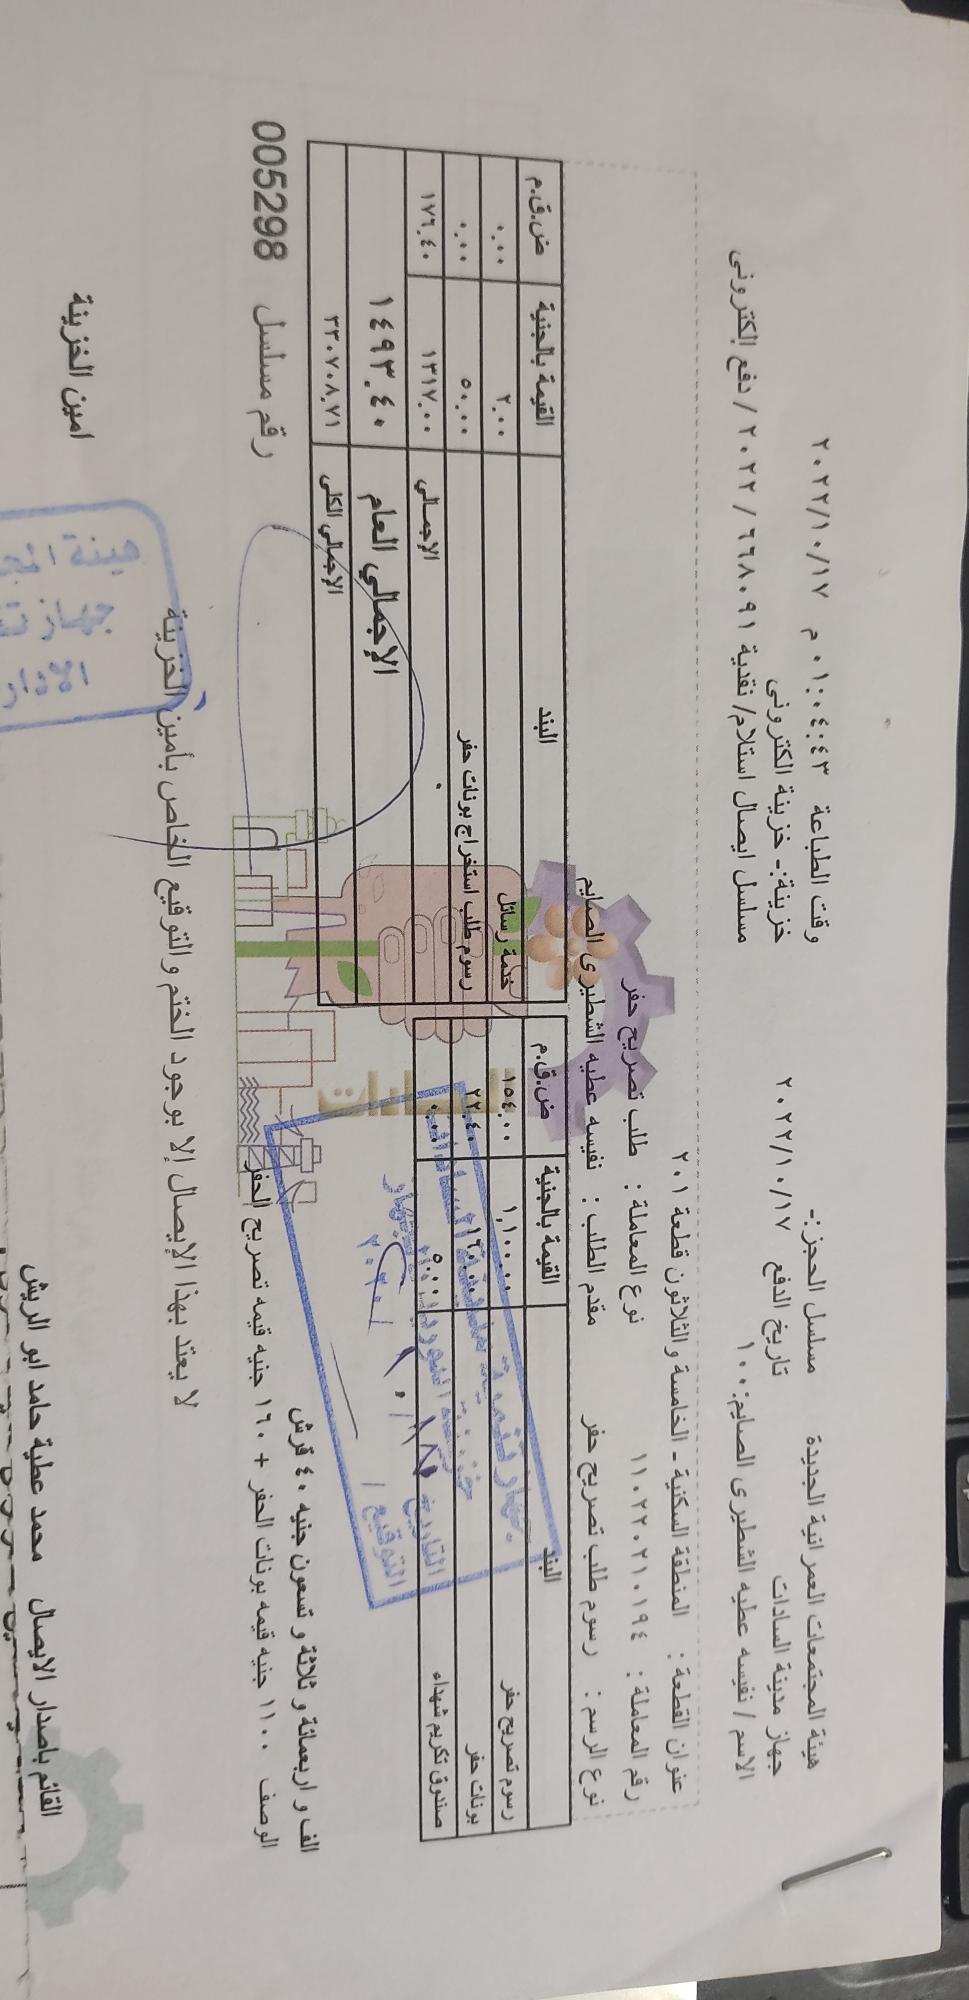 هيئة المجتمعات العمرانية الجديدة مسلسل الحجز:- وقت الطباعة ٠١:٠٤:٤٣ م ٢٠٢٢/١٠/١٧
جهاز مدينة السادات تاريخ الدفع ٢٠٢٢/١٠/١٧ خزينة:- خزينة الكترونى
الاسم / نفيسه عطيه الشطيرى الصايم: ١٠٠ مسلسل ايصال استلام/ نقدية ٦٦٨٠٩١ / ٢٠٢٢ / دفع الكترونى
عنوان القطعة : المنطقة السكنية - الخامسة والثلاثون قطعة ٢٠١
رقم المعاملة : ١١٠٢٢٠٢١٠١٩٤ نوع المعاملة : طلب تصريح حفر
نوع الرسم : رسوم طلب تصريح حفر مقدم الطلب : نفيسه عطيه الشطيرى الصايم
البند القيمة بالجنية ض.ق.م البند القيمة بالجنية ض.ق.م
رسوم تصريح حفر ١,١٠٠.٠٠ ١٥٤.٠٠ خدمة رسائل ٢.٠٠ ٠.٠٠
بونات حفر ١٦٠.٠٠ ٢٢.٤٠ رسوم طلب استخراج بونات حفر ٥٠.٠٠ ٠.٠٠
صندوق تكريم شهداء ٥.٠٠ ٠.٠٠ الإجمالي ١٣١٧.٠٠ ١٧٦.٤٠
الإجمالي العام ١٤٩٣.٤٠
الإجمالي الكلى ٣٣٠٧٠٨.٧١
الف و اربعمائة و ثلاثة و تسعون جنيه ٤٠ قرش
الوصف ١١٠٠ جنيه قيمه بونات الحفر + ١٦٠ جنيه قيمه تصريح الحفر
رقم مسلسل 005298
لا يعتد بهذا الإيصال إلا بوجود الختم والتوقيع الخاص بأمين الخزينة
القائم باصدار الايصال محمد عطية حامد ابو الريش امين الخزينة
جهاز تنمية
التاريخ
التوقيع /
هيئة المج
جهاز
الادار